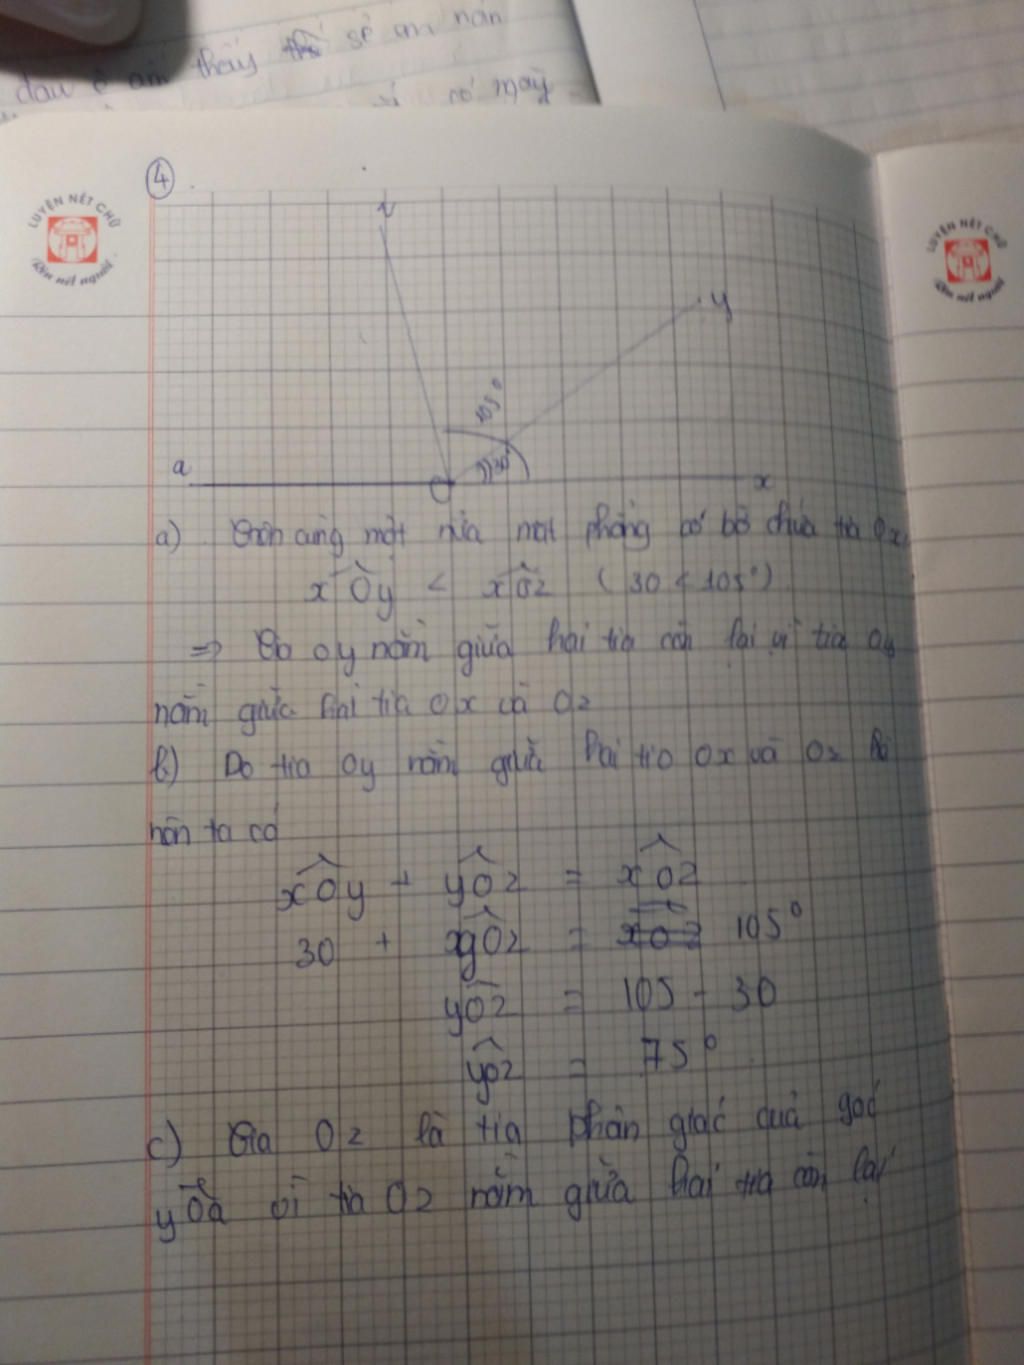 thấy sẽ em
đau ê có mấy
4
LUYỆN NÉT CHỮ
Rèn nết người
LUYỆN NÉT CHỮ
Rèn nết người
z
y
105°
30°
a
O
x
a) Trên cùng một nửa mặt phẳng có bờ chứa tia Ox
xÔy < xÔz (30 < 105°)
=> Tia Oy nằm giữa hai tia còn lại vì tia Oy
nằm giữa hai tia Ox và Oz
b) Do tia Oy nằm giữa hai tia Ox và Oz
nên ta có
xÔy + yÔz = xÔz
30 + yÔz = xÔz 105°
yÔz = 105 - 30
yÔz = 75°
c) Tia Oz là tia phân giác của góc
yÔa vì tia Oz nằm giữa hai tia còn lại